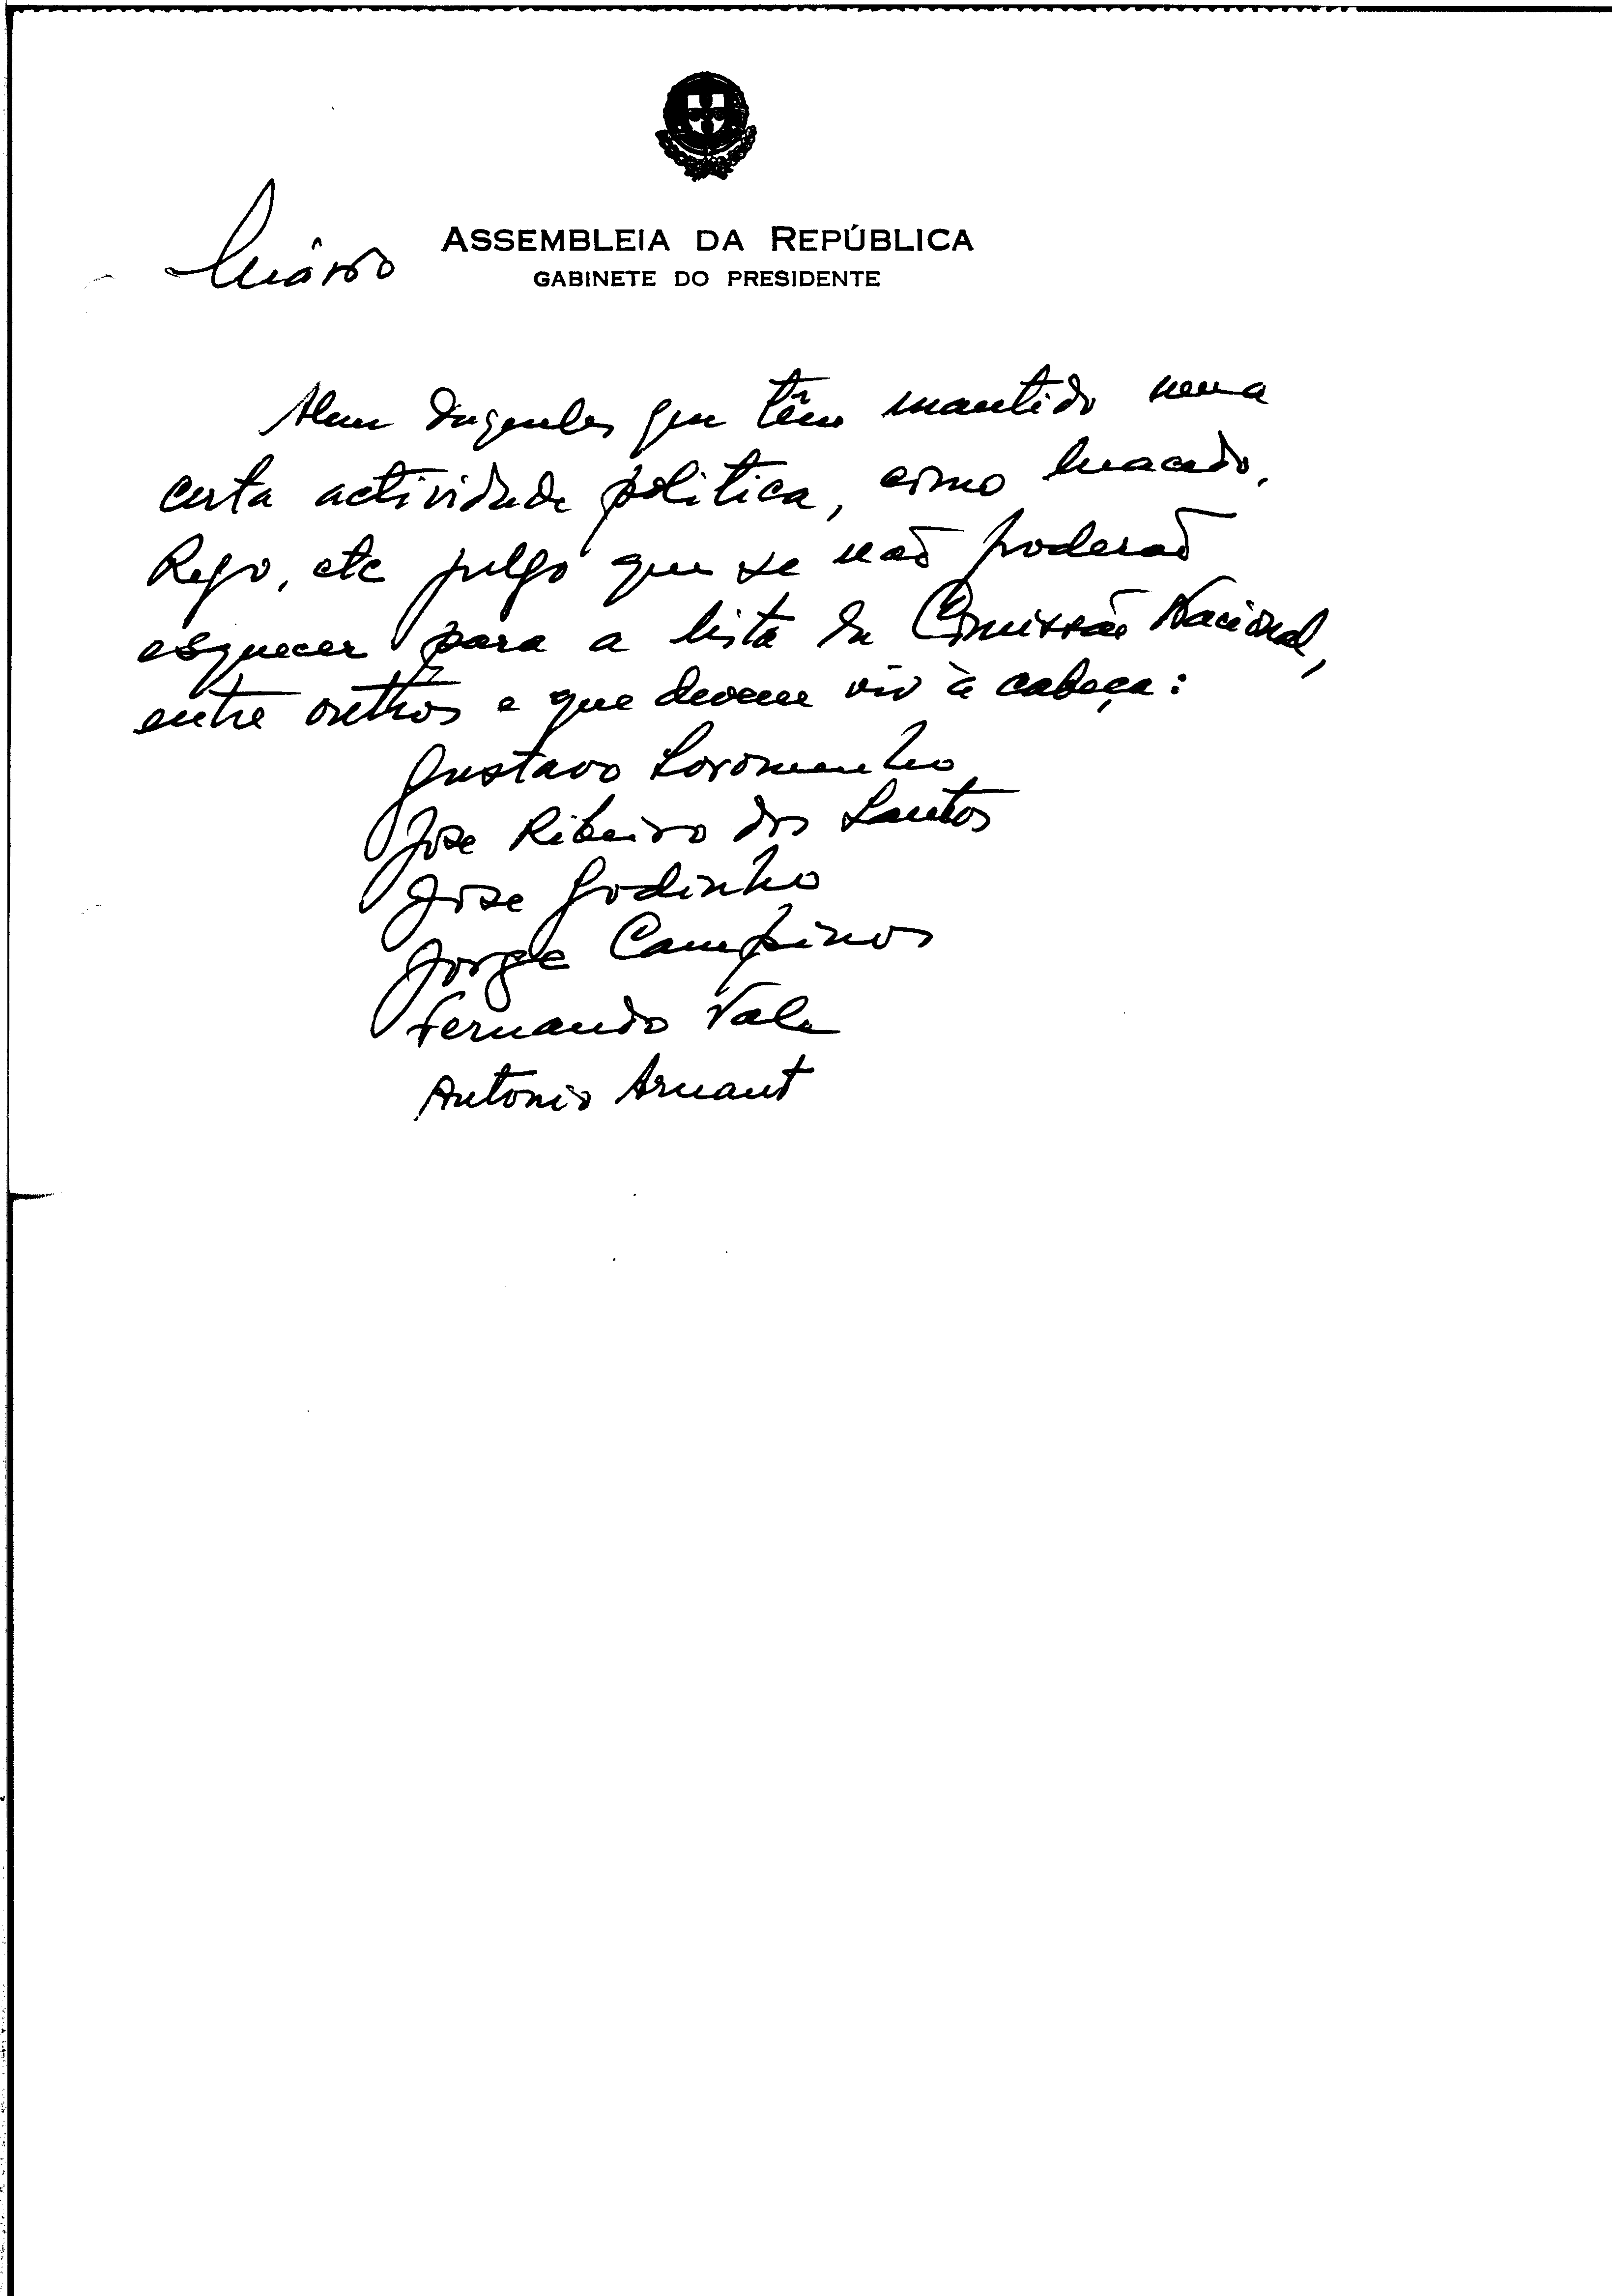 ASSEMBLEIA DA REPÚBLICA
GABINETE DO PRESIDENTE
Mário
Alem dirigentes que têm mantido uma
certa actividade politica, como Macedo,
Rego, etc julgo que se não poderão
esquecer para a lista da Comissão Nacional,
entre outros e que devem vir à cabeça:
Gustavo Soromenho
Jose Ribeiro dos Santos
Jose Godinho
Jorge Campinos
Fernando Vale
Antonio Arnaut